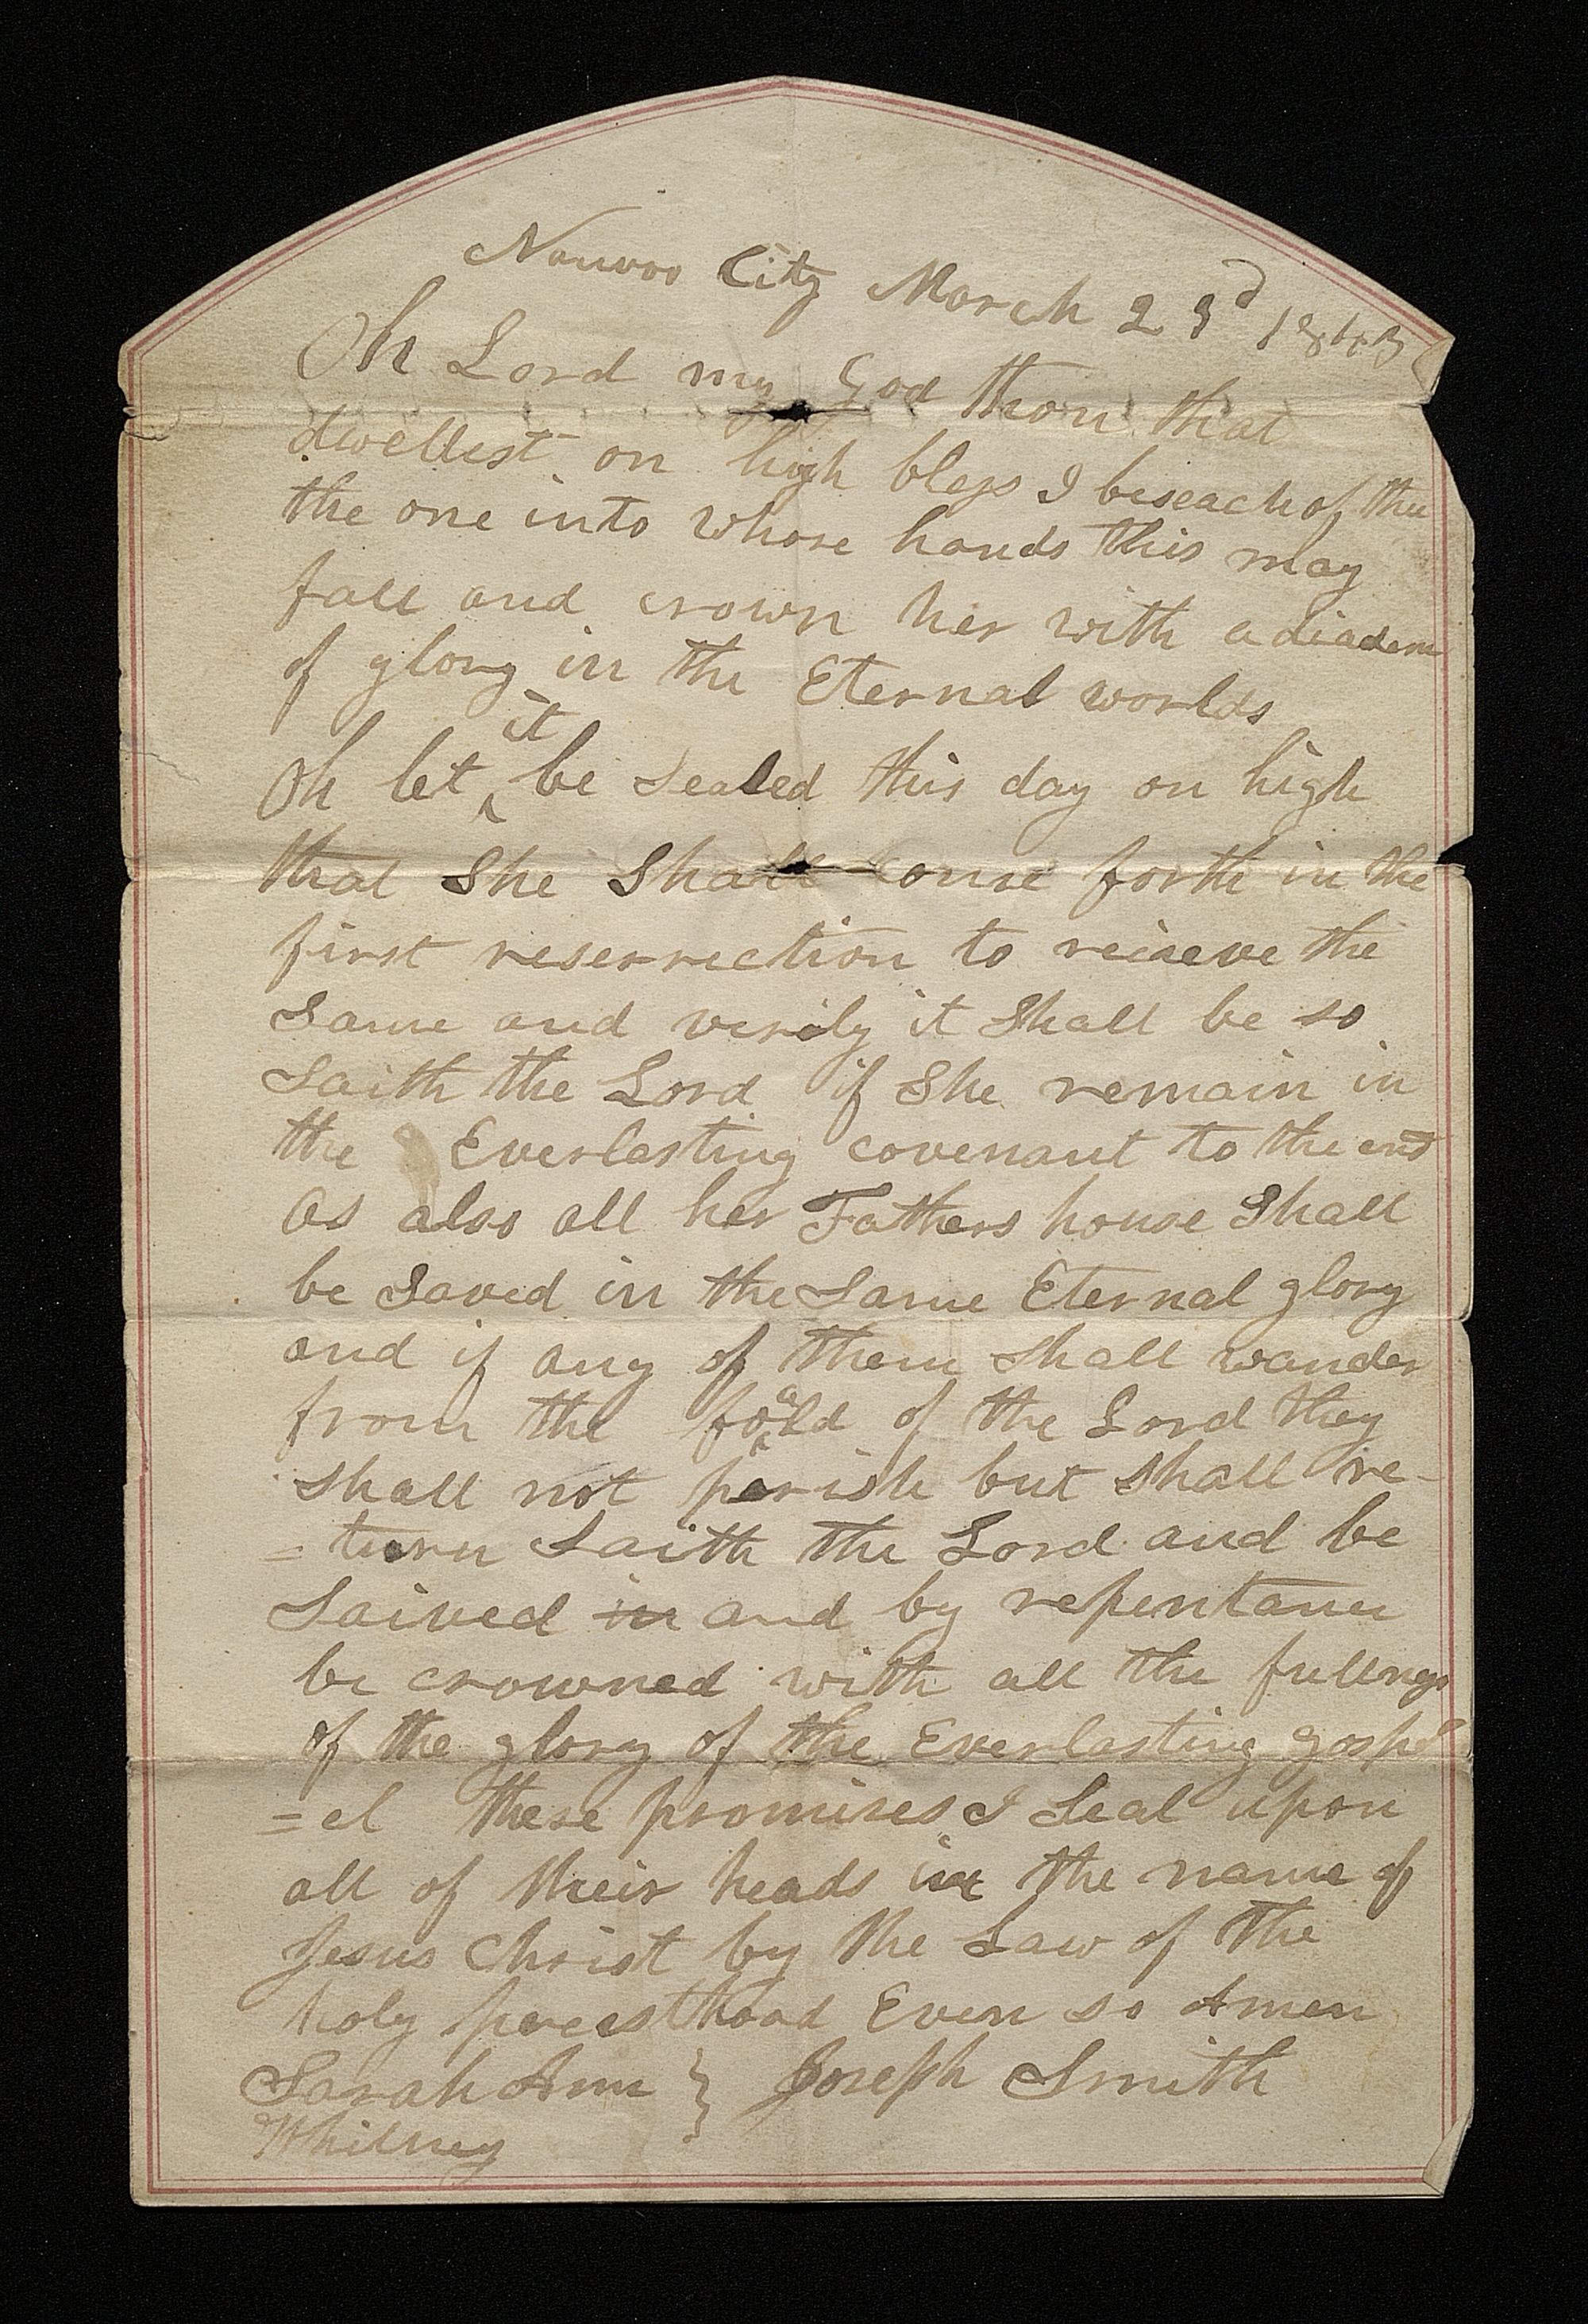 Nauvoo City March 23d 1843
Oh Lord my God thou that
dwellest on high bless I beseach of thee
the one into whose hands this may
fall and crown her with a diadem
of glory in the Eternal worlds
Oh let it be Sealed this day on high
that She Shall come forth in the
first reserrection to recieve the
Same and verily it Shall be so
Saith the Lord if She remain in
the Everlasting covenant to the end
as also all her Fathers house Shall
be Saved in the Same Eternal glory
and if any of them shall wander
from the foald of the Lord they
shall not perish but shall re-
=turn Saith the Lord and be
Saived in and by repentance
be crowned with all the fullness
of the glory of the Everlasting gosp
=el these promises I Seal upon
all of their heads in the name of
Jesus Christ by the Law of the
holy preesthood Even so Amen
Sarah Ann } Joseph Smith
Whitney